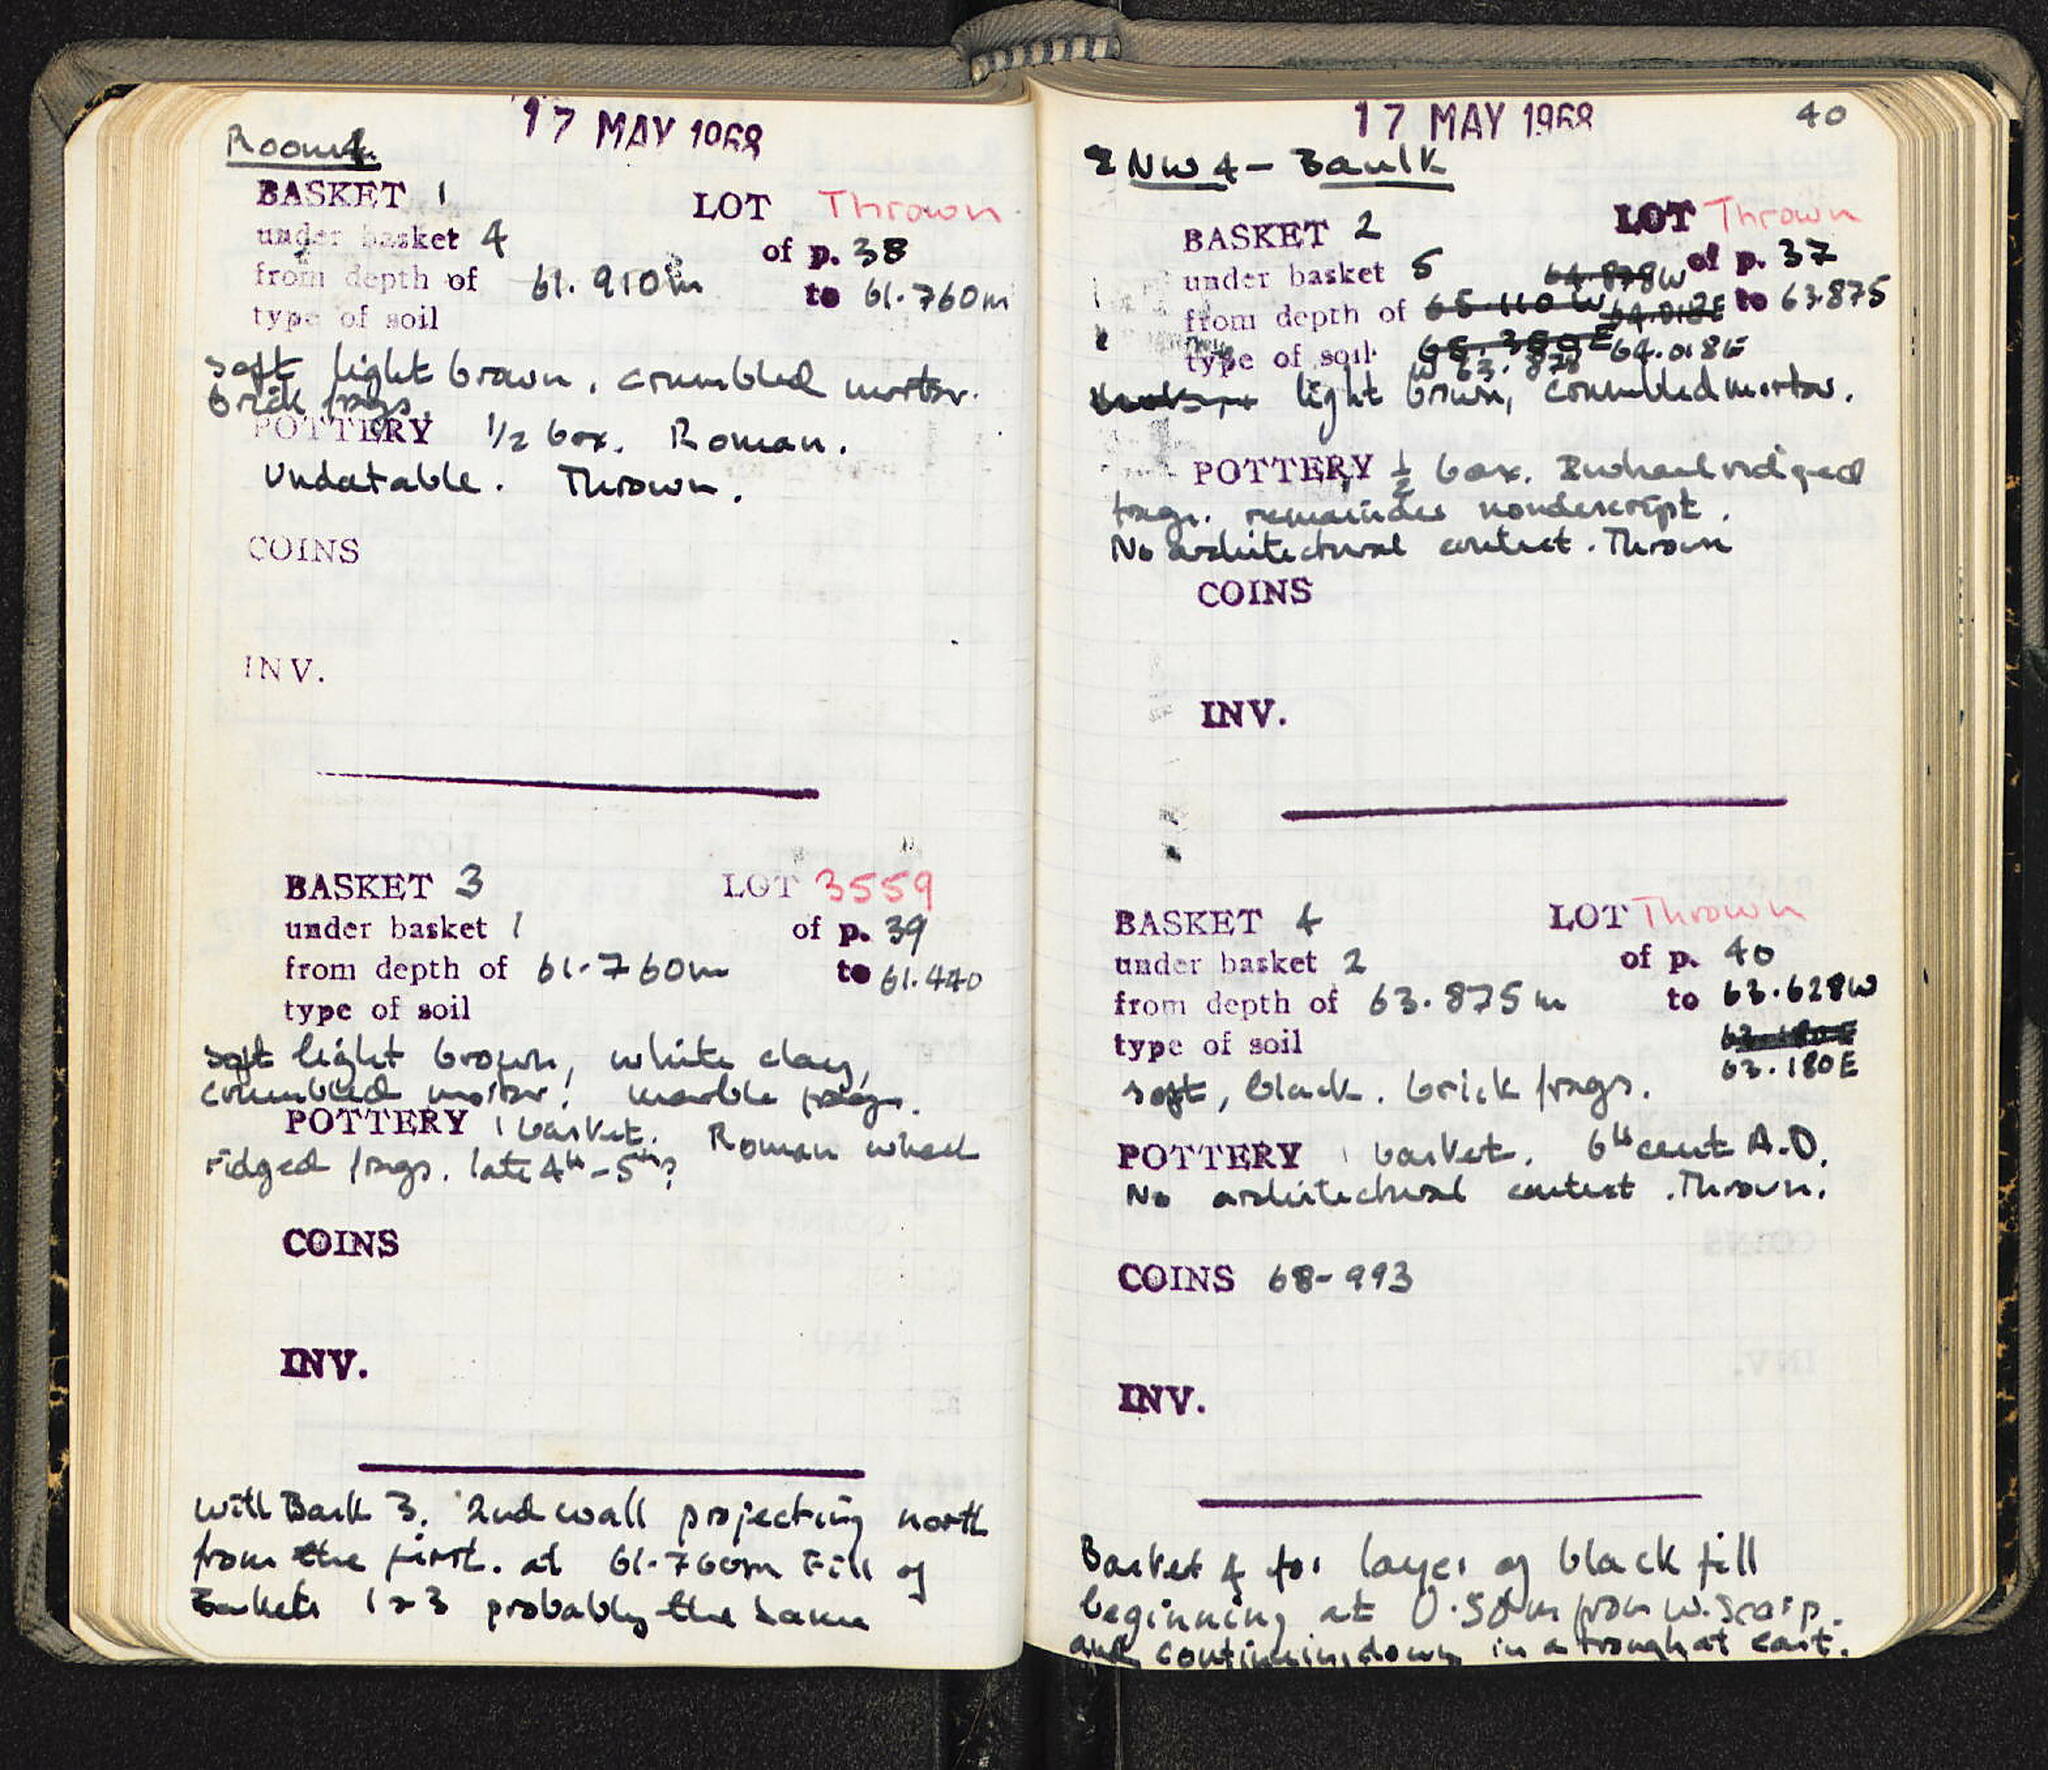 17 MAY 1968
Room 4
BASKET 1 LOT Thrown
under basket 4 of p. 38
from depth of 61.910m to 61.760m
type of soil
soft light brown, crumbled mortar.
brick frags.
POTTERY 1/2 box. Roman.
Undatable. Thrown.
COINS
INV.
BASKET 3 LOT 3559
under basket 1 of p. 39
from depth of 61.760m to 61.440
type of soil
soft light brown, white clay,
crumbled mortar, marble frags.
POTTERY 1 basket. Roman wheel
ridged frags. late 4th-5th?
COINS
INV.
With Bask 3. 2nd wall projecting north
from the first. at 61.760m Fill of
Baskets 1 + 3 probably the same
17 MAY 1968 40
NW 4 - Baulk
BASKET 2 LOT Thrown
under basket 5 of p. 37
64.878W
from depth of 65.110 W 64.018E to 63.875
type of soil 65.380E 64.018E
W 63.878
light brown, crumbled mortar.
POTTERY 1/2 box. 2 wheel ridged
frags. remainder nondescript.
No architectural context. Thrown
COINS
INV.
BASKET 4 LOT Thrown
under basket 2 of p. 40
from depth of 63.875m to 63.628W
type of soil 63.180E
63.180E
soft, black. brick frags.
POTTERY 1 basket. 6th cent A.D.
No architectural context. Thrown.
COINS 68-993
INV.
Basket 4 for layer of black fill
beginning at 0.50m from W. Scarp.
and continuing down in a trough at east.